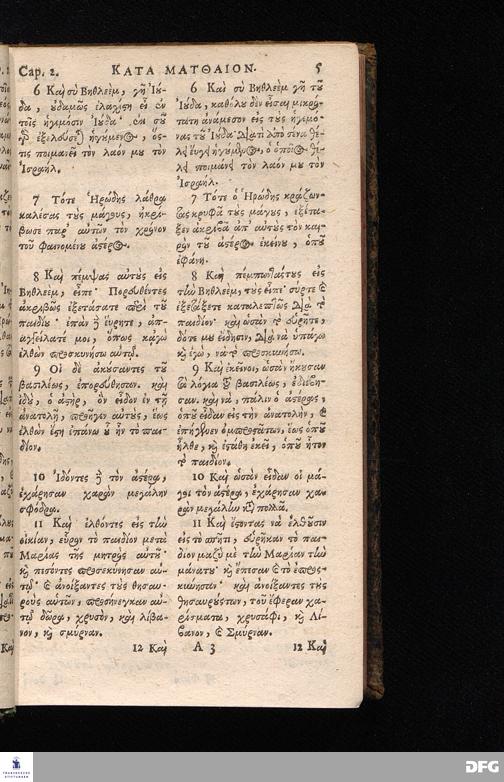 Cap. 2. ΚΑΤΑ ΜΑΤΘΑΙΟΝ. 5
6 Καὶ σὺ Βηθλεὲμ, γῆ Ἰού-
δα, οὐδαμῶς ἐλαχίςη εἶ ἐν
τοῖς ἡγεμόσιν Ἰούδα· ἐκ σοῦ
γδ ἐξελούσε) ἡγούμενος, ὅς-
τις ποιμανεῖ τὸν λαόν μου τὸν
Ἰσραήλ.
7 Τότε Ἡρώδης λάθρα
καλέσας τοὺς μάγους, ἠκρί-
βωσε παρ' αὐτῶν τὸν χρόνον
τοῦ φαινομένου ἀςέρος.
8 Καὶ πέμψας αὐτοὺς εἰς
Βηθλεὲμ, εἶπε· Πορευθέντες
ἀκριβῶς ἐξετάσατε περὶ τοῦ
παιδίου· ἐπὰν ἢ εὕρητε, ἀπ-
αγγείλατέ μοι, ὅπως κἀγὼ
ἐλθὼν προσκυνήσω αὐτῷ.
9 Οἱ δὲ ἀκούσαντες τοῦ
βασιλέως, ἐπορεύθησαν. καὶ
ἰδοὺ, ὁ ἀςὴρ, ὃν εἶδον ἐν τῇ
ἀνατολῇ, προῆγεν αὐτοὺς, ἕως
ἐλθὼν ἔςη ἐπάνω οὗ ἦν τὸ παι-
δίον.
10 Ἰδόντες ἢ τὸν ἀςέρα,
ἐχάρησαν χαρὰν μεγάλην
σφόδρα.
11 Καὶ ἐλθόντες εἰς τὴν
οἰκίαν, εὗρον τὸ παιδίον μετὰ
Μαρίας τῆς μητρὸς αὐτοῦ·
κ̀ πεσόντες προσεκύνησαν αὐ-
τῷ· & ἀνοίξαντες τοὺς θησαυ-
ροὺς αὐτῶν, προσήνεγκαν αὐ-
τῷ δῶρα, χρυσὸν, καὶ λίβα-
νον, & σμύρναν.
12 Καὶ
6 Καὶ σὺ Βηθλεὲμ γῆ τοῦ
Ἰούδα, καθόλου δὲν εἶσαι μικρο-
τάτη ἀνάμεσον εἰς τοὺς ἡγεμό-
νας τοῦ Ἰούδα· διατὶ ἀπὸ σένα θέ-
λει εὔγει ἡγούμενος, ὁ ὁποῖος θέ-
λει ποιμάνει τὸν λαόν μου τὸν
Ἰσραήλ.
7 Τότε ὁ Ἡρώδης κράζων-
τας κρυφὰ τοὺς μάγους, ἐξέτα-
ξεν ἀκριβὰ ἀπ' αὐτοὺς τὸν και-
ρὸν τοῦ ἀςέρος ἐκείνου, ὁποῦ
ἐφάνη.
8 Καὶ πέμπωντάς τους εἰς
τὴν Βηθλεὲμ, τοὺς εἶπε· σύρτε &
ἐξετάξετε καταλεπτῶς διὰ τὸ
παιδίον· καὶ ὡσὰν τὸ εὑρῆτε,
δότε μου εἴδησιν, διὰ νὰ ὑπάγω
κ̀ ἐγὼ, νὰ τὸ προσκυνήσω.
9 Καὶ ἐκεῖνοι, ὡσὰν ἤκουσαν
τὰ λόγια τοῦ βασιλέως, ἐδιέβη-
σαν. καὶ νὰ, πάλιν ὁ ἀςέρας,
ὁποῦ εἶδαν εἰς τὴν ἀνατολὴν, &
ἐπήγαινεν ὀμπροςάτων, ἕως ὁποῦ
ἦλθε, κ̀ ἐςάθη ἐκεῖ, ὁποῦ ἦτον
τὸ παιδίον.
10 Καὶ ὡσὰν εἶδαν οἱ μά-
γοι τὸν ἀςέρα, ἐχάρησαν χα-
ρὰν μεγάλην κατὰ πολλά.
11 Καὶ ἔςοντας νὰ ἐλθοῦσιν
εἰς τὸ σπῆτι, εὑρῆκαν τὸ παι-
δίον μαζὺ μὲ τὴν Μαρίαν τὴν
μάνα του· κ̀ ἔπεσαν & τὸ ἐπροσ-
κύνησαν· καὶ ἀνοίξαντες τῆς
θησαυρούς των, τοῦ ἔφεραν χα-
ρίσματα, χρυσάφι, κ̀ Λί-
βανον, & Σμύρναν.
A 3 12 Καὶ
DFG